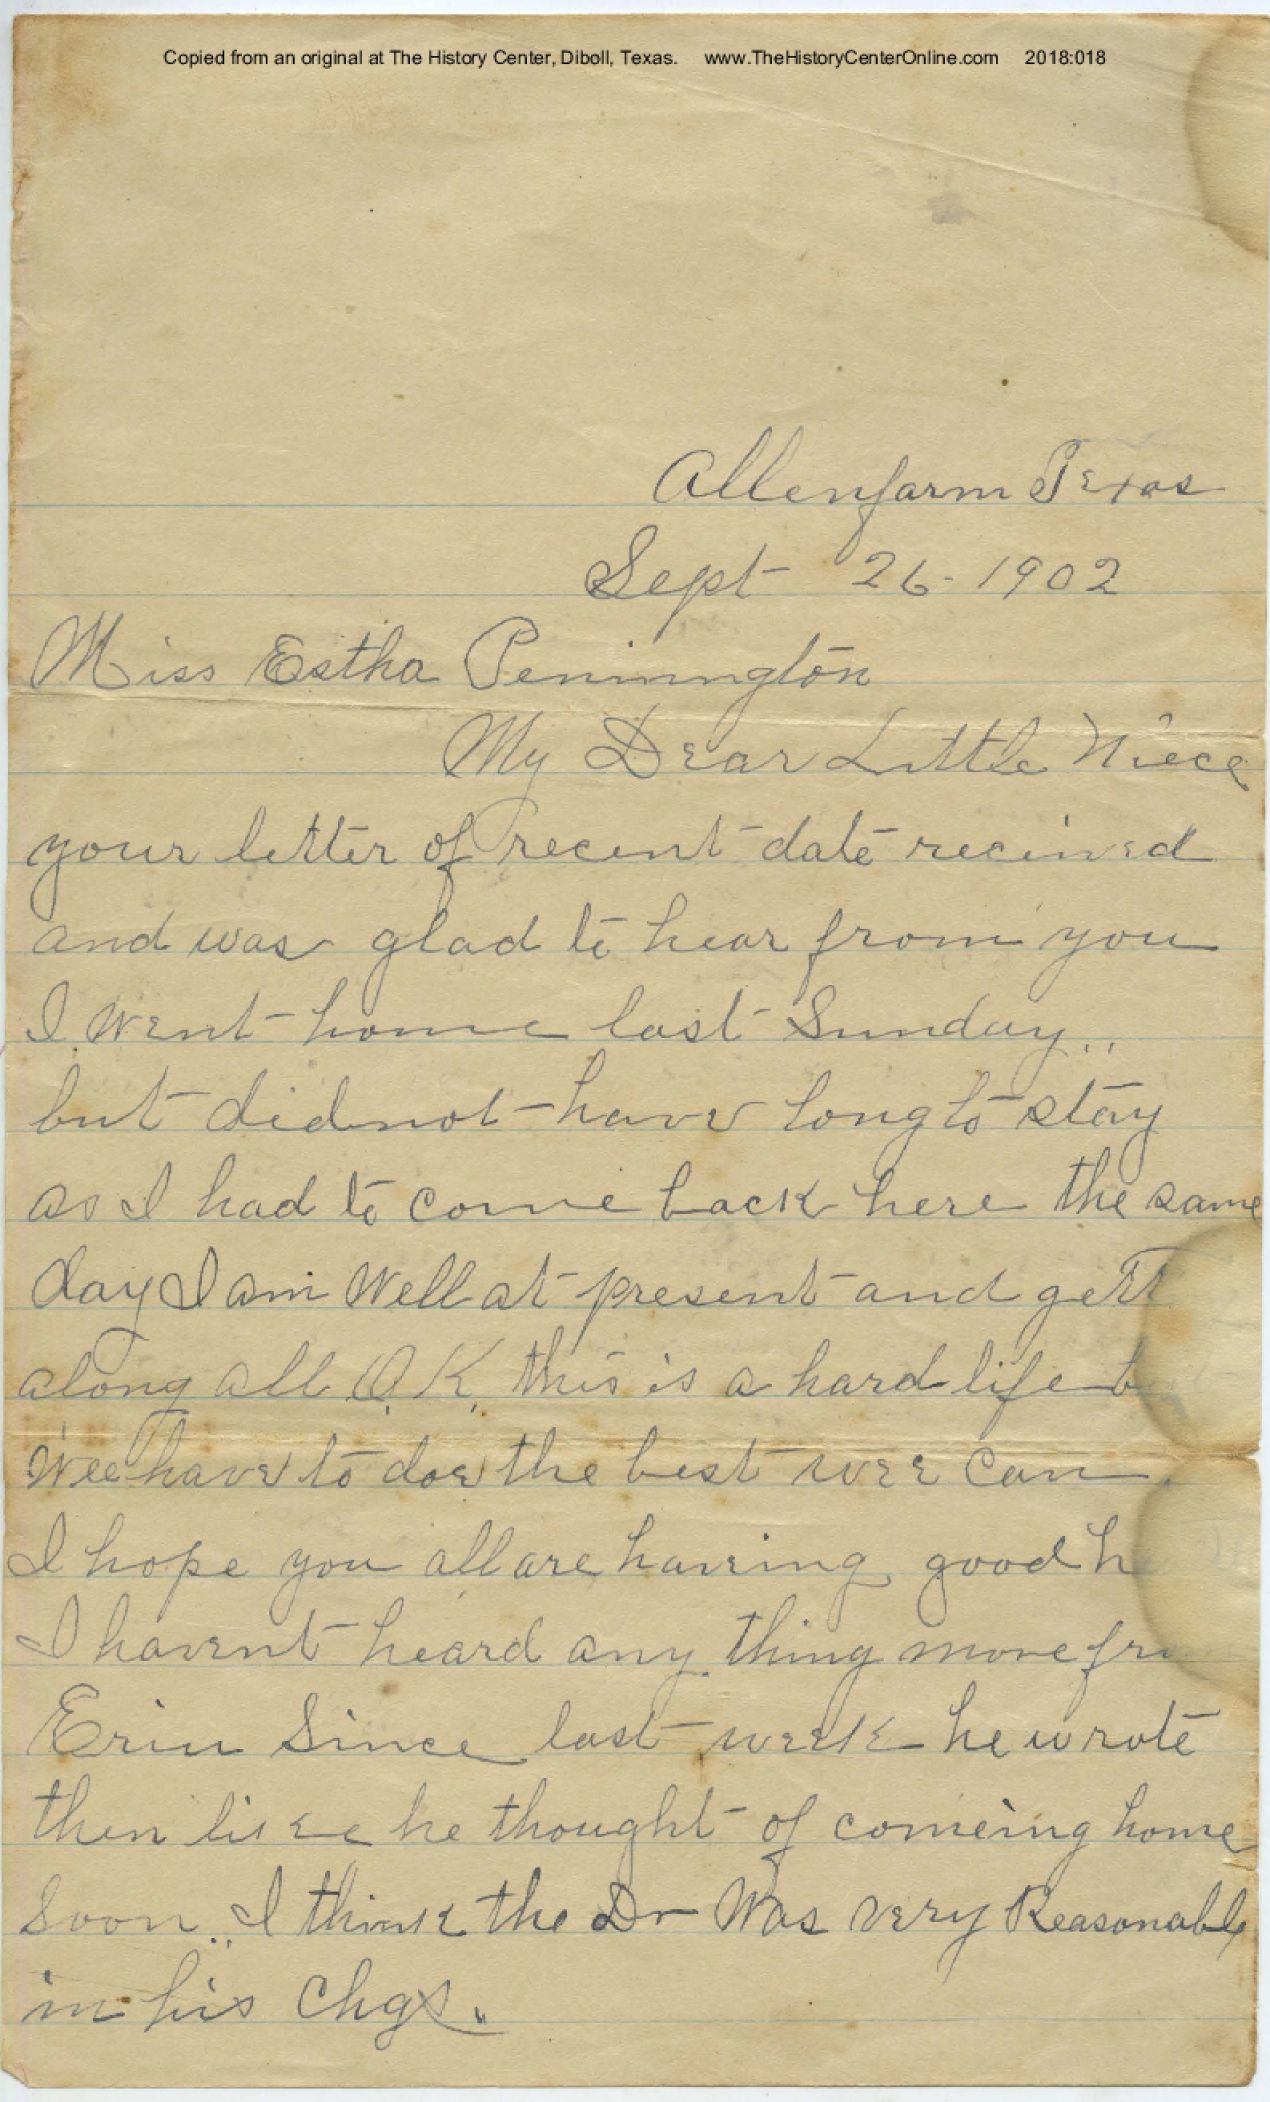 Copied from an original at The History Center, Diboll, Texas. www.TheHistoryCenterOnline.com 2018:018
Allenfarm Texas
Sept 26-1902
Miss Estha Peninngton
My Dear Little Niece
your letter of recent date recieved
and was glad to hear from you
I went home last Sunday..
but did not have long to stay
as I had to come back here the same
day I am Well at present and gett
along all O.K. this is a hard life b
Wee have to doe the best wee can.
I hope you all are having good h
I havent heard any thing more fr
Erin Since last week he wrote
then like he thought of comeing home
Soon.. I think the Dr Was very Reasonable
in his Chgs.